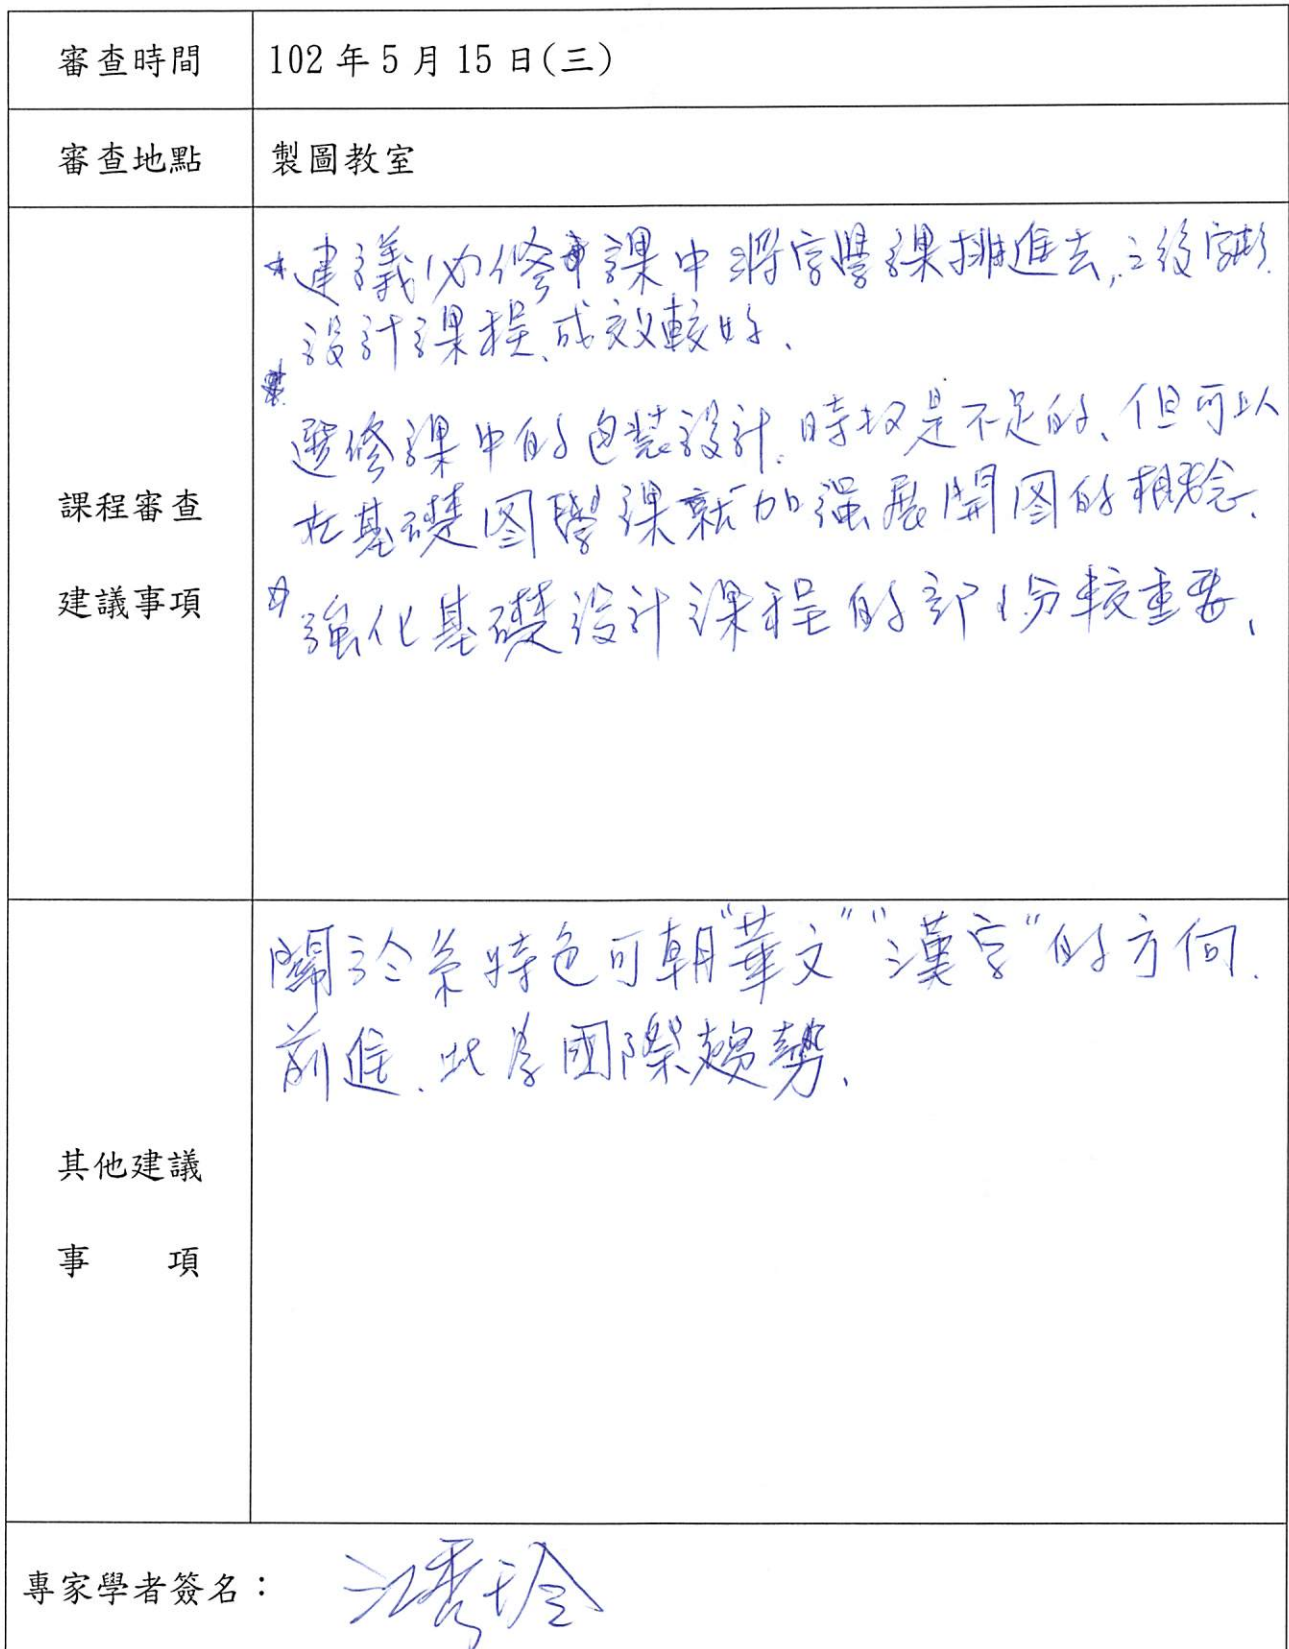 審查時間 102 年 5 月 15 日(三)
審查地點 製圖教室
課程審查
建議事項
*建議必修課中將字學課排進去,之後字形
設計課程、成效較好、
* 選修課中的包裝設計、時數是不足的、但可以
在基礎图學課就加強展開图的概念、
* 強化基礎設計課程的部份較重要、
其他建議
事 項
關於系特色可朝"華文""漢字"的方向、
前進、此為國際趨勢、
專家學者簽名: